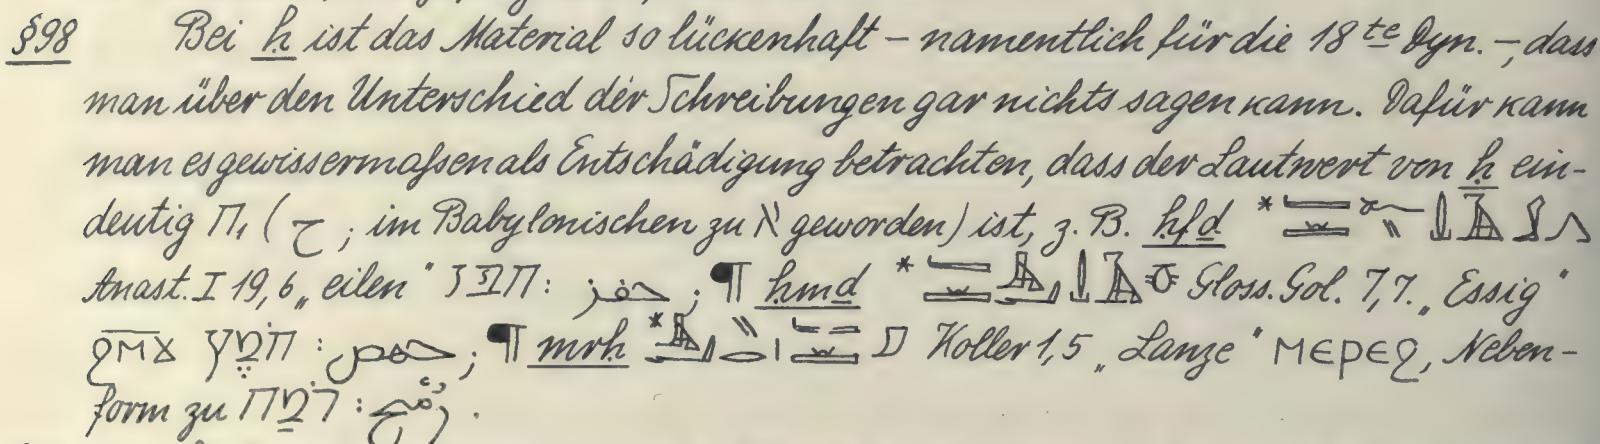 §98 Bei ḥ ist das Material so lückenhaft – namentlich für die 18te Dyn. –, dass
man über den Unterschied der Schreibungen gar nichts sagen kann. Dafür kann
man es gewissermaßen als Entschädigung betrachten, dass der Lautwert von ḥ ein-
deutig ח, (ح ; im Babylonischen zu א geworden) ist, z. B. ḥfḏ *
Anast. I 19,6 „eilen“ חפז : حفز ; ¶ ḥmḏ * Gloss. Gol. 7,7. „Essig“
ϩⲙϫ חֹמֶץ : حمض ; ¶ mrḥ * Koller 1,5 „Lanze“ ⲙⲉⲣⲉϩ, Neben-
form zu רֹמַח : رُمْح .